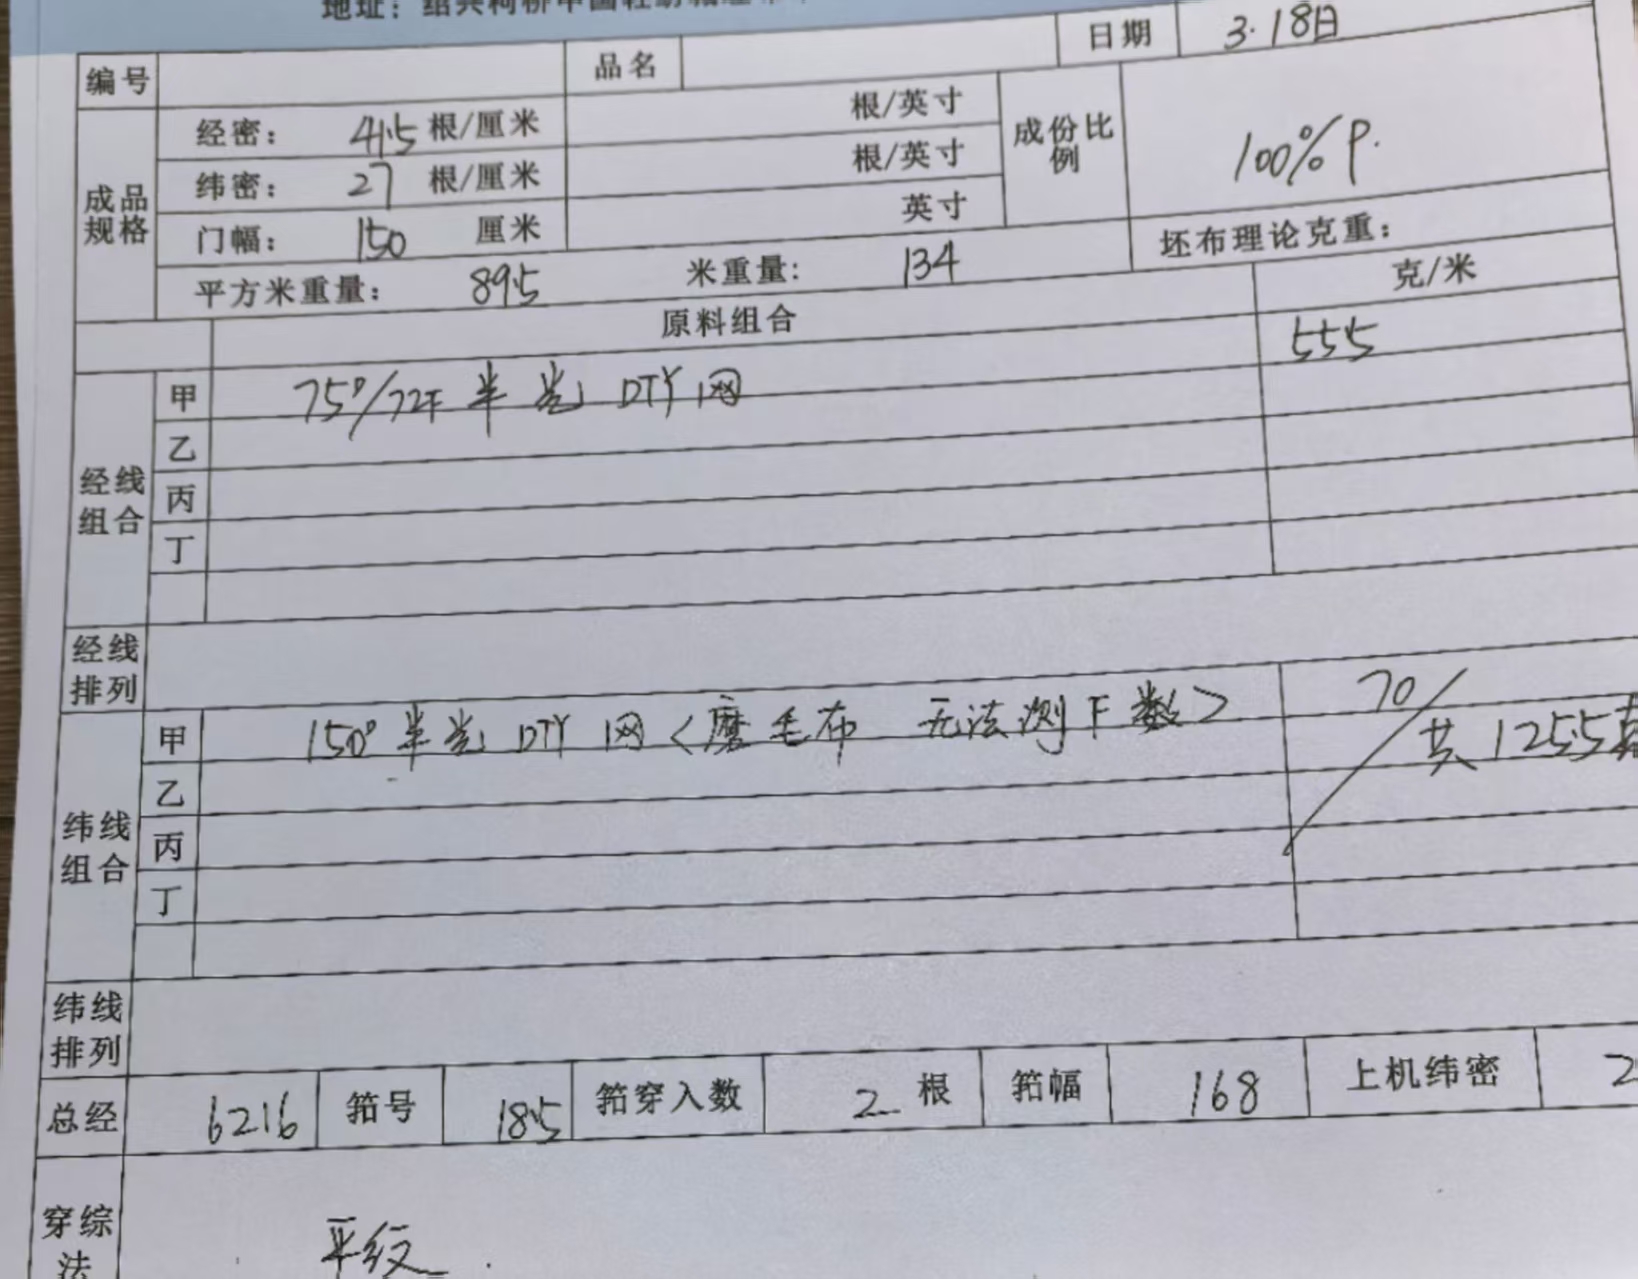 地址：绍兴柯桥中国轻纺城
编号 品名 日期 3.18日
成品规格 经密： 41.5 根/厘米 根/英寸 成份比例 100% P.
纬密： 27 根/厘米 根/英寸
门幅： 150 厘米 英寸
平方米重量： 89.5 米重量： 134 坯布理论克重：
原料组合 克/米
经线组合 甲 75D/72F 半光 DTY 网 55.5
乙
丙
丁
经线排列
纬线组合 甲 150D 半光 DTY 网<磨毛布 无法测F数> 70
乙 共 125.5
丙
丁
纬线排列
总经 6216 筘号 18.5 筘穿入数 2 根 筘幅 168 上机纬密
穿综法 平纹